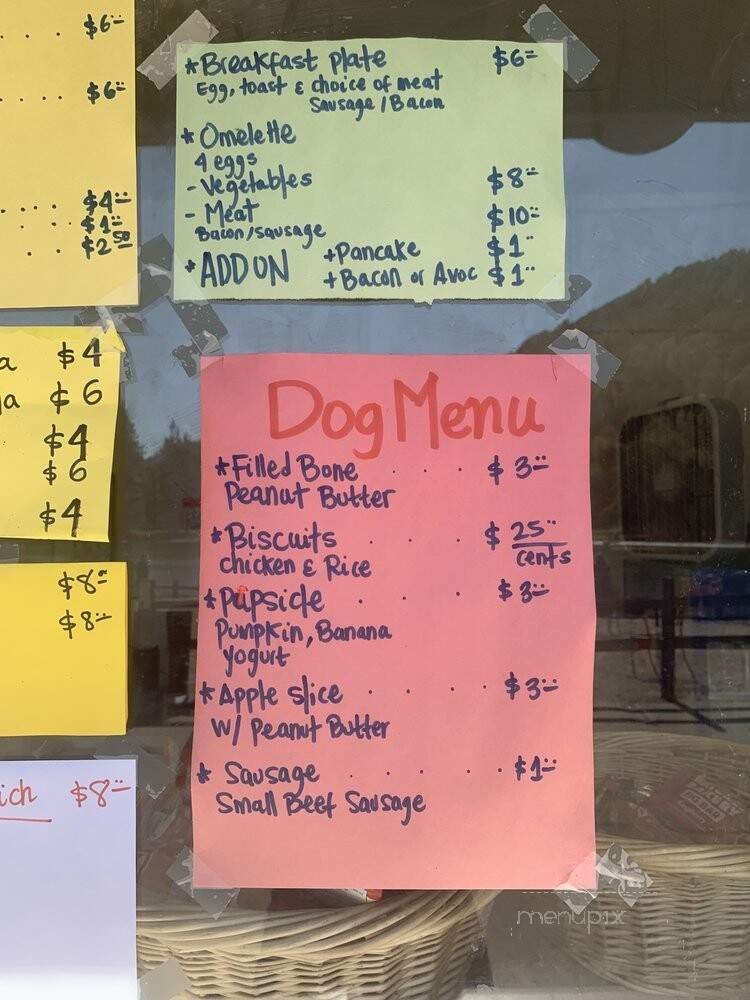 $6
$6
$4
$1
$2 50
a $4
ja $6
$4
$6
$4
$8
$8
ich $8
* Breakfast plate $6
Egg, toast & choice of meat
Sausage / Bacon
* Omelette
4 eggs
- Vegetables $8
- Meat $10
Bacon / sausage
* ADD ON + Pancake $1
+ Bacon or Avoc $1
Dog Menu
* Filled Bone . . . $3
Peanut Butter
* Biscuits . . . $ 25
cents
chicken & Rice
* Pupsicle . . . $3
Pumpkin, Banana
yogurt
* Apple slice . . . . $3
W/ Peanut Butter
* Sausage . . . . . $1
Small Beef Sausage
menupix